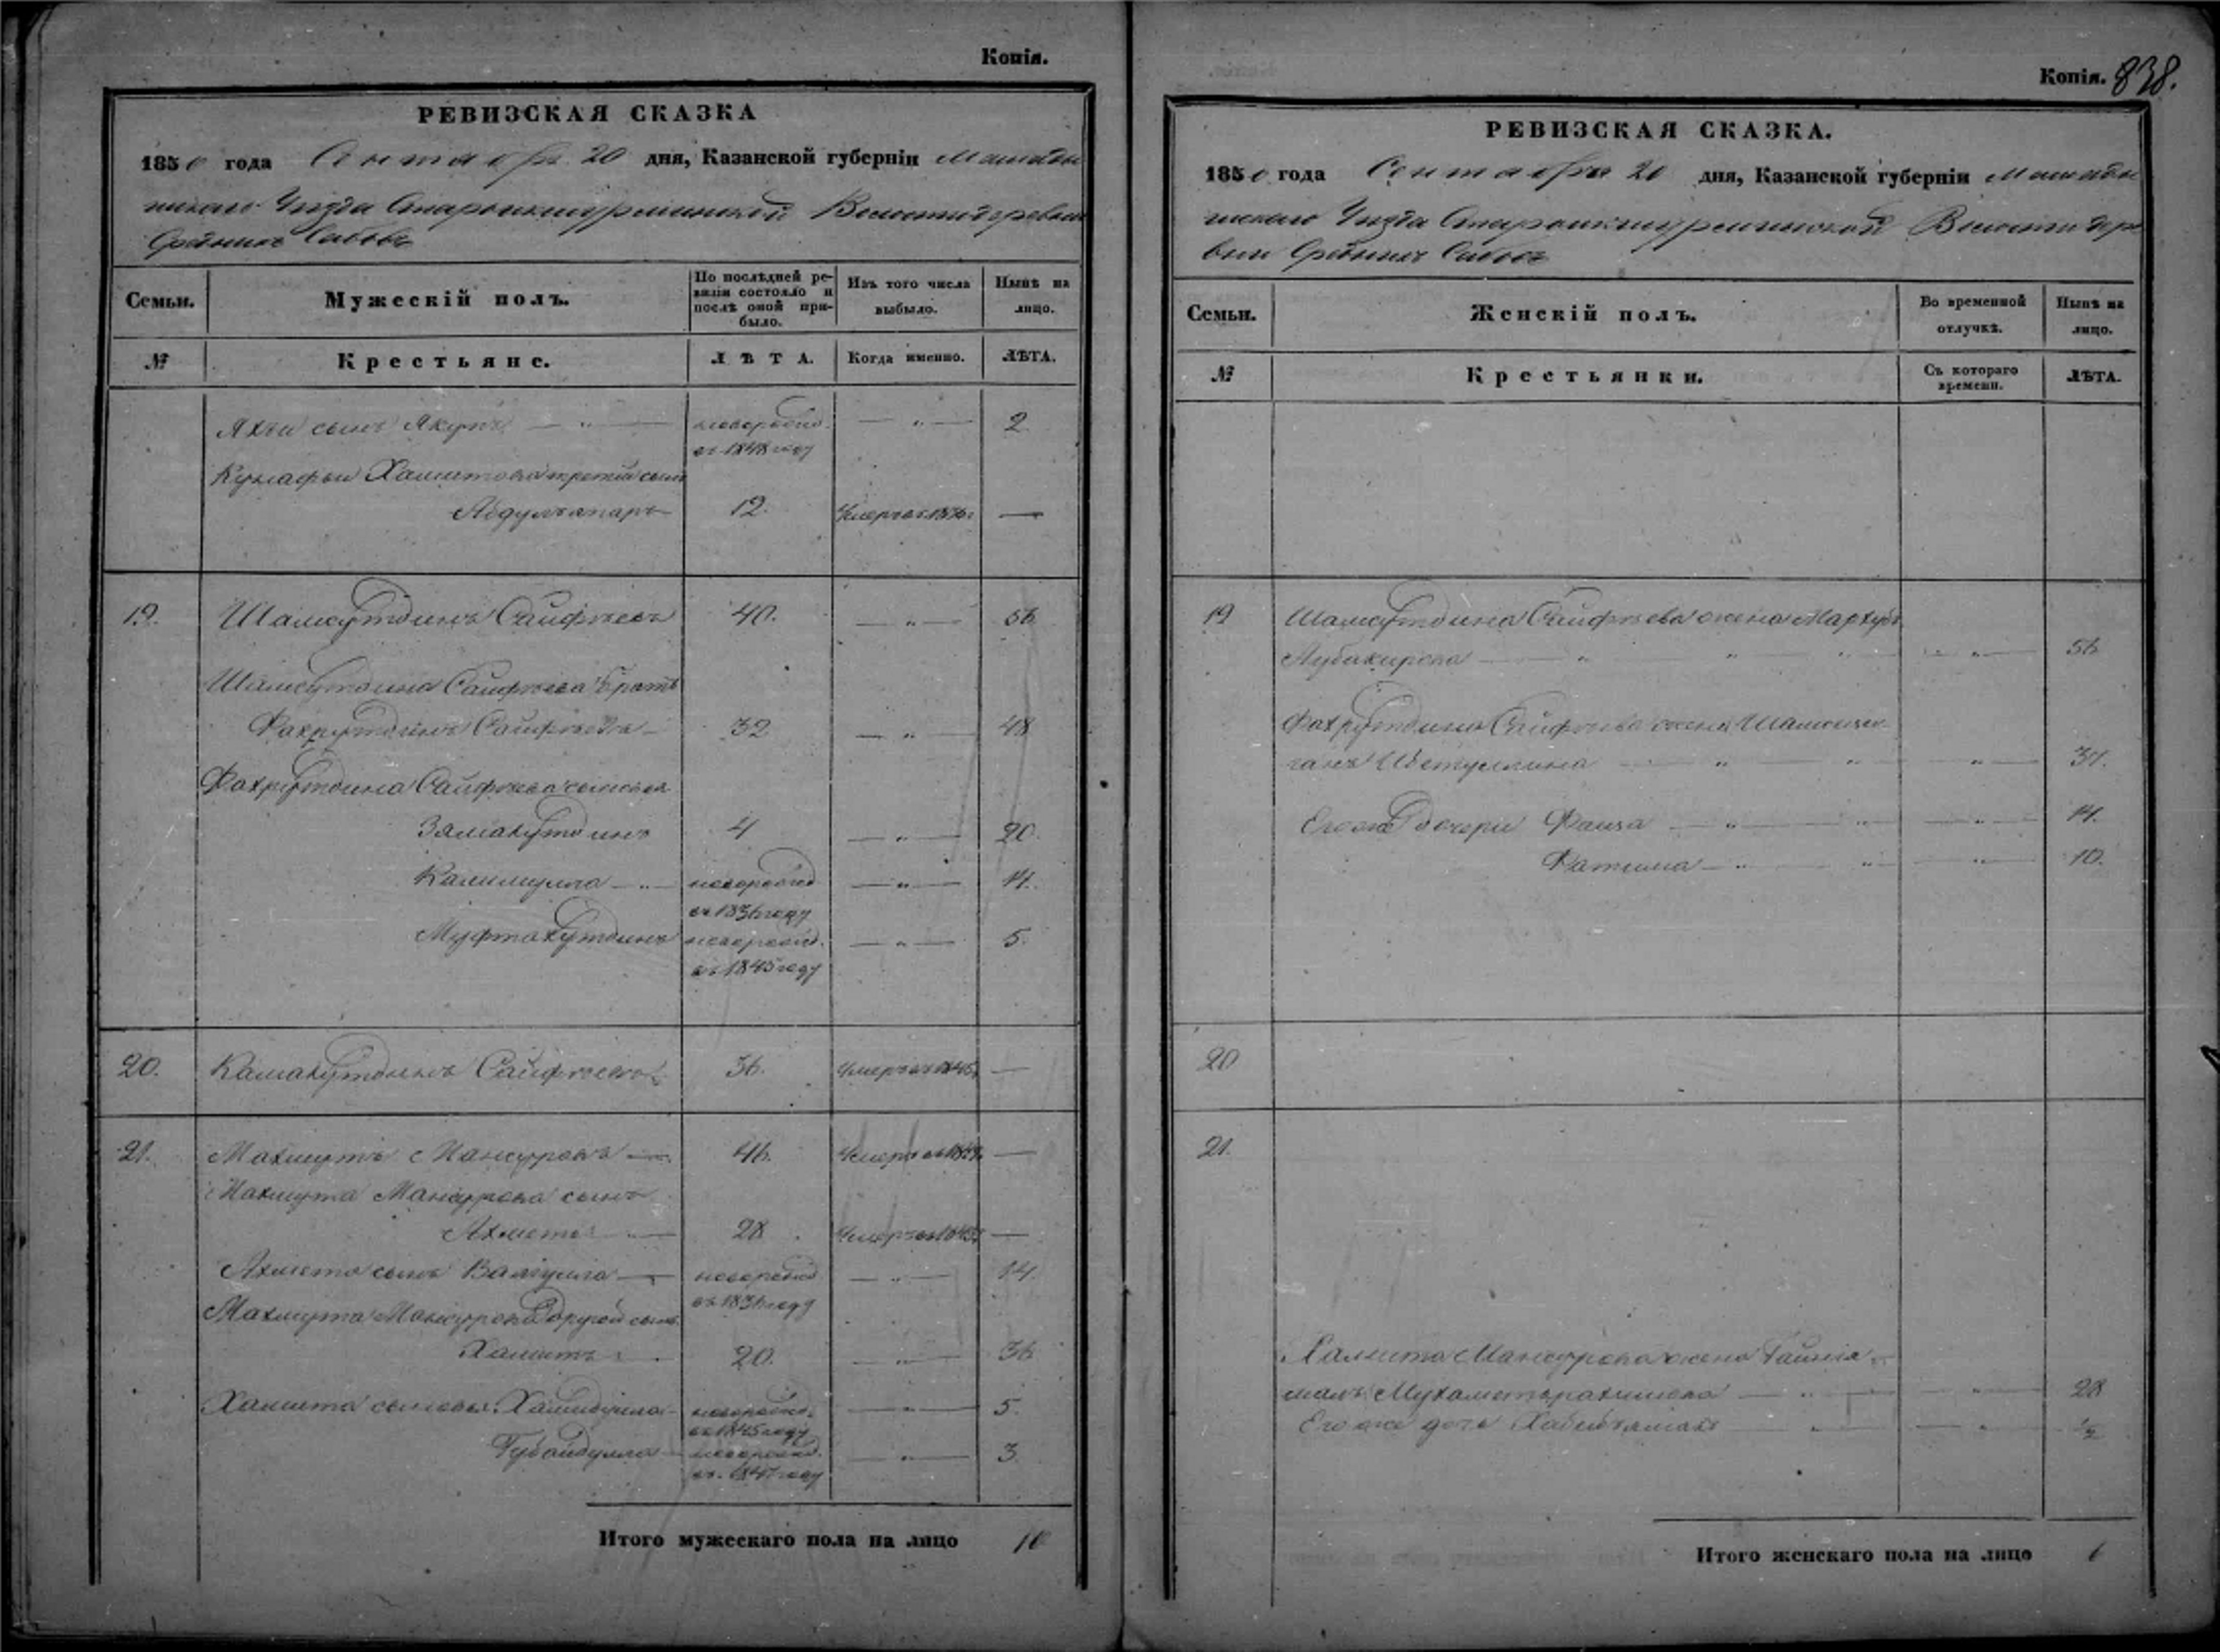 Копія.
РЕВИЗСКАЯ СКАЗКА
1850 года Сентября 20 дня, Казанской губерніи Мамады
шскаго Уѣзда Староикшурминской Волости деревни
Среднихъ Сабовъ
Семьи. Мужескій полъ. По послѣдней ревизіи состояло и послѣ оной прибыло. Изъ того числа выбыло. Нынѣ на лицо.
№ Крестьяне. ЛѢТА. Когда именно. ЛѢТА.
Яхъи сынъ Якупъ — " — новорожд. — " — 2
въ 1848 году
Хамитова третій сынъ
12. Умеръ въ —
19. Шамсутдинъ Сайфѣевъ 40. — " — 56
Шамсутдина Сайфѣева братъ
Фахрутдинъ Сайфѣевъ 32 — " — 48
Фахрутдина Сайфѣева сыновья
4 — " — 20.
Калимулла — " — новорожд — " — 14.
въ 1836 году
Муфтахутдинъ новорожд. — " — 5.
въ 1845 году
20. Камалутдинъ Сайфѣевъ 36. Умеръ въ —
21. Махмутъ Мансуровъ — 46. Умеръ въ —
Махмута Мансурова сынъ
Ахметъ — 28 Умеръ въ —
Ахмета сынъ Валіулла — новорожд — " — 14
въ 1836 году
Махмута Мансурова другой сынъ
Хамитъ 20. — " — 36
Хамита сыновья новорожд. — " — 5.
въ 1845 году
Губайдулла — новорожд. — " — 3.
въ 1847 году
Итого мужескаго пола на лицо 10
Копія. 838.
РЕВИЗСКАЯ СКАЗКА.
1850 года Сентября 20 дня, Казанской губерніи Мамады
шскаго Уѣзда Староикшурминской Волости дере
вни Среднихъ Сабовъ
Семьи. Женскій полъ. Во временной отлучкѣ. Нынѣ на лицо.
№ Крестьянки. Съ котораго времени. ЛѢТА.
19 Шамсутдина Сайфѣева жена
Абубакирова — " — " — " — " — 56
Фахрутдина Сайфѣева жена
— " — " — " — 34.
Его же дочери Фаиза — " — " — " — 14.
Фатима — " — " — " — 10.
20
21.
Хамита Мансурова жена
Мухаметьрахимова — " — " — 28
Его же дочь — " — " — ½
Итого женскаго пола на лицо 6